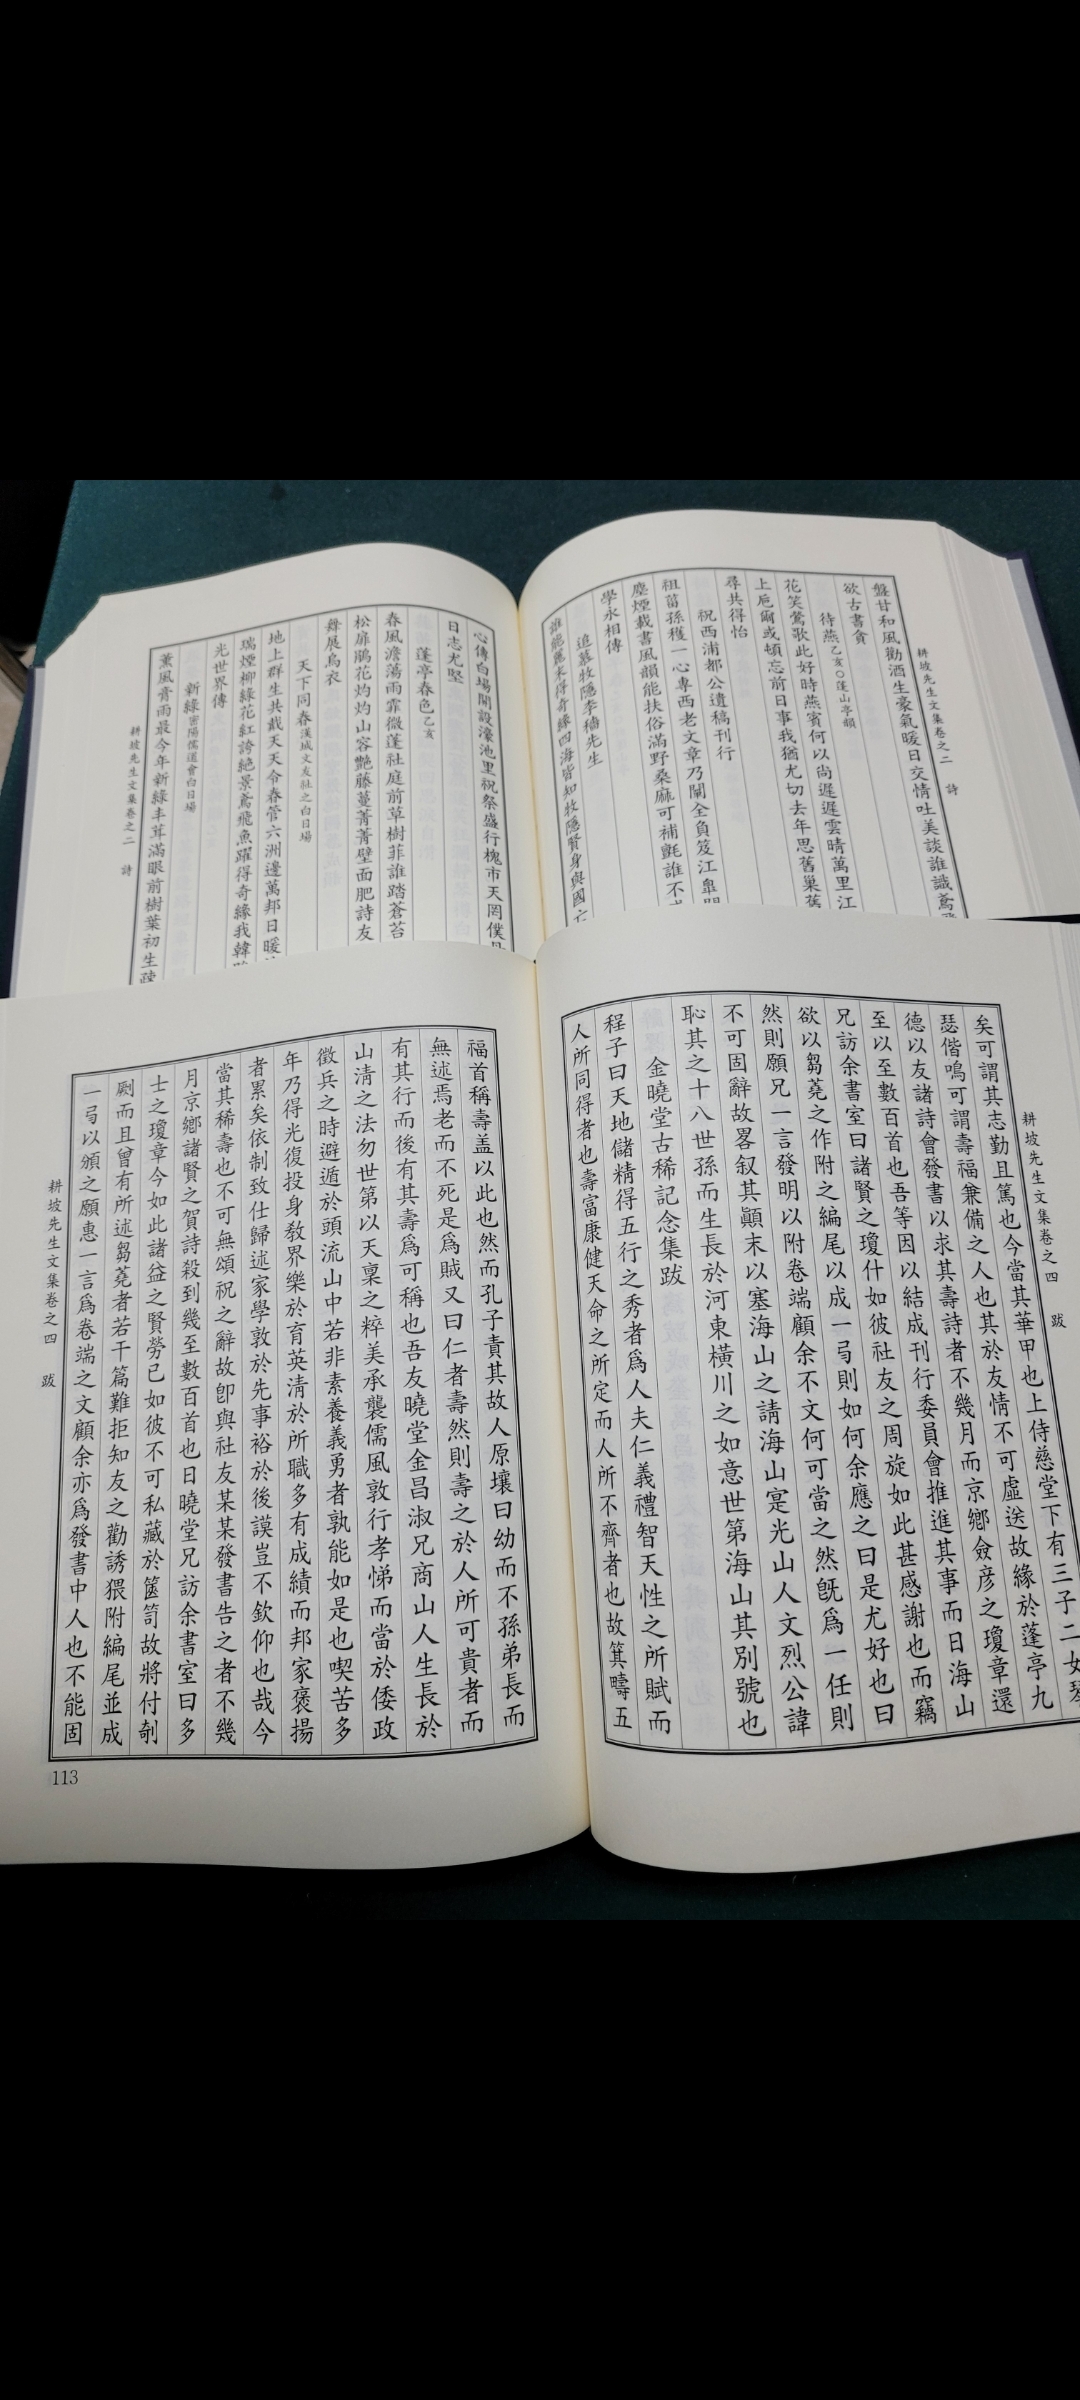 耕坡先生文集卷之二 詩
盤甘和風勸酒生豪氣暖日交情吐美談誰識鳶
欲古書貪
待燕乙亥○蓬山亭韻
花笑鶯歌此好時燕賓何以尚遲遲雲晴萬里江
上巵爾或頓忘前日事我猶尤切去年思舊巢舊
尋共得怡
祝西浦都公遺稿刊行
祖苗孫穫一心專西老文章乃闡全負笈江皐
塵煙載書風韻能扶俗滿野桑麻可補氈誰不
學永相傳
追慕牧隱李穡先生
誰能麗末得奇緣四海皆知牧隱賢身與國亡
心傳白場開設濠池里祝祭盛行槐市天罔僕
日志尤堅
蓬亭春色乙亥
春風澹蕩雨霏微蓬社庭前草樹菲誰踏蒼苔
松扉鵑花灼灼山容艶藤蔓菁菁壁面肥詩友
舞展烏衣
天下同春漢城文友社之白日場
地上群生共戴天天令春管六洲邊萬邦日暖
瑞煙柳綠花紅誇絶景鳶飛魚躍得奇緣我韓
光世界傳
新綠密陽儒道會白日場
薰風膏雨最今年新綠丰茸滿眼前樹葉初生
耕坡先生文集卷之二 詩
耕坡先生文集卷之四 跋
矣可謂其志勤且篤也今當其華甲也上侍慈堂下有三子二女琴
瑟偕鳴可謂壽福兼備之人也其於友情不可虛送故緣於蓬亭九
德以友諸詩會發書以求其壽詩者不幾月而京鄉僉彦之瓊章還
至以至數百首也吾等因以結成刊行委員會推進其事而日海山
兄訪余書室曰諸賢之瓊什如彼社友之周旋如此甚感謝也而竊
欲以芻蕘之作附之編尾以成一弓則如何余應之曰是尤好也曰
然則願兄一言發明以附卷端顧余不文何可當之然旣爲一任則
不可固辭故畧叙其顚末以塞海山之請海山寔光山人文烈公諱
恥其之十八世孫而生長於河東橫川之如意世第海山其別號也
金曉堂古稀記念集跋
程子曰天地儲精得五行之秀者爲人夫仁義禮智天性之所賦而
人所同得者也壽富康健天命之所定而人所不齊者也故箕疇五
福首稱壽盖以此也然而孔子責其故人原壤曰幼而不孫弟長而
無述焉老而不死是爲賊又曰仁者壽然則壽之於人所可貴者而
有其行而後有其壽爲可稱也吾友曉堂金昌淑兄商山人生長於
山淸之法勿世第以天稟之粹美承襲儒風敦行孝悌而當於倭政
徵兵之時避遁於頭流山中若非素養義勇者孰能如是也喫苦多
年乃得光復投身敎界樂於育英淸於所職多有成績而邦家褒揚
者累矣依制致仕歸述家學敦於先事裕於後謨豈不欽仰也哉今
當其稀壽也不可無頌祝之辭故卽與社友某某發書告之者不幾
月京鄉諸賢之賀詩殺到幾至數百首也日曉堂兄訪余書室曰多
士之瓊章今如此諸益之賢勞已如彼不可私藏於篋笥故將付剞
劂而且曾有所述芻蕘者若干篇難拒知友之勸誘猥附編尾並成
一弓以頒之願惠一言爲卷端之文顧余亦爲發書中人也不能固
耕坡先生文集卷之四 跋
113